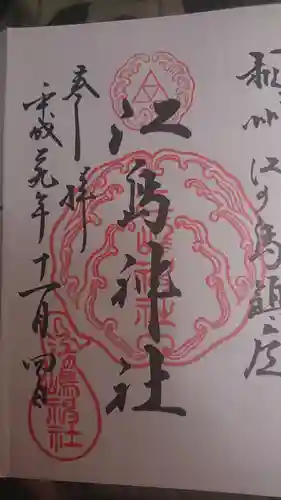 相州江の島鎮座
江島神社
奉拝
平成二九年十一月四日
江嶋神社